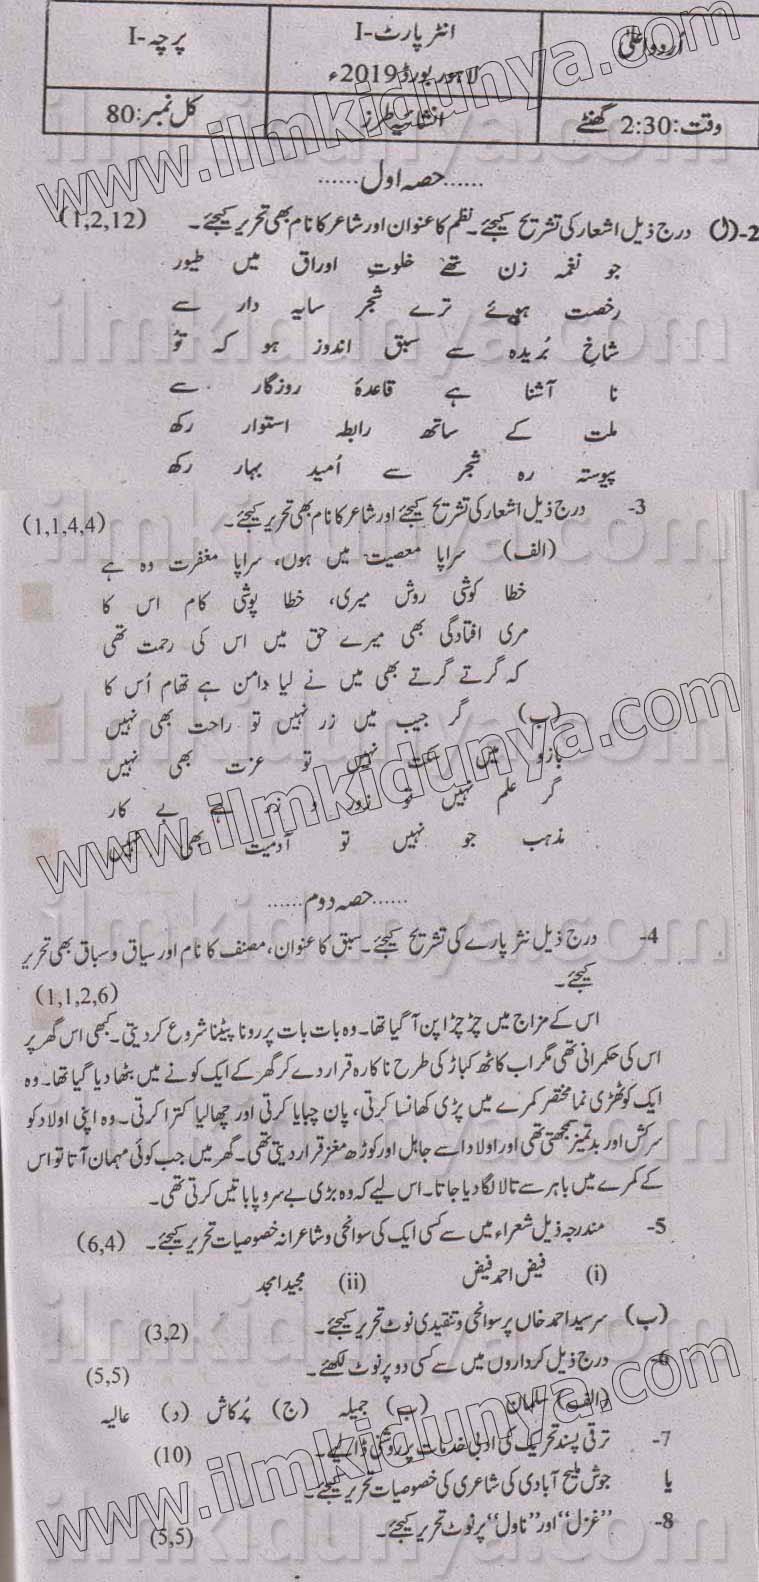 اُردو اعلیٰ انٹر پارٹ-I پرچہ-I
لاہور بورڈ 2019ء
وقت: 2:30 گھنٹے انشائیہ طرز کل نمبر: 80
......حصہ اول......
2-(ا) درج ذیل اشعار کی تشریح کیجئے۔ نظم کا عنوان اور شاعر کا نام بھی تحریر کیجئے۔ (1,2,12)
جو نغمہ زن تھے خلوتِ اوراق میں طیور
رخصت ہوئے ترے شجر سایہ دار سے
شاخِ بُریدہ سے سبق اندوز ہو کہ تُو
نا آشنا ہے قاعدۂ روزگار سے
ملت کے ساتھ رابطہ استوار رکھ
پیوستہ رہ شجر سے اُمید بہار رکھ
3- درج ذیل اشعار کی تشریح کیجئے اور شاعر کا نام بھی تحریر کیجئے۔ (1,1,4,4)
(الف) سراپا معصیت میں ہوں، سراپا مغفرت وہ ہے
خطا کوشی روش میری، خطا پوشی کام اس کا
مری افتادگی بھی میرے حق میں اس کی رحمت تھی
کہ گرتے گرتے بھی میں نے لیا دامن ہے تھام اُس کا
(ب) گر جیب میں زر نہیں تو راحت بھی نہیں
بازو میں سکت نہیں تو عزت بھی نہیں
گر علم نہیں تو زور و زر ہے بے کار
مذہب جو نہیں تو آدمیت بھی نہیں
......حصہ دوم......
4- درج ذیل نثر پارے کی تشریح کیجئے۔ سبق کا عنوان، مصنف کا نام اور سیاق و سباق بھی تحریر
کیجئے۔ (1,1,2,6)
اس کے مزاج میں چڑچڑا پن آ گیا تھا۔ وہ بات بات پر رونا پیٹنا شروع کر دیتی۔ کبھی اس گھر پر
اس کی حکمرانی تھی مگر اب کاٹھ کباڑ کی طرح ناکارہ قرار دے کر گھر کے ایک کونے میں بٹھا دیا گیا تھا۔ وہ
ایک کوٹھڑی نما مختصر کمرے میں پڑی کھانسا کرتی، پان چبایا کرتی اور چھالیا کترا کرتی۔ وہ اپنی اولاد کو
سرکش اور بدتمیز سمجھتی تھی اور اولاد اسے جاہل اور کوڑھ مغز قرار دیتی تھی۔ گھر میں جب کوئی مہمان آتا تو اس
کے کمرے میں باہر سے تالا لگا دیا جاتا۔ اس لیے کہ وہ بڑی بے سروپا باتیں کرتی تھی۔
5- مندرجہ ذیل شعراء میں سے کسی ایک کی سوانحی و شاعرانہ خصوصیات تحریر کیجئے۔ (6,4)
(i) فیض احمد فیض (ii) مجید امجد
(ب) سرسید احمد خاں پر سوانحی و تنقیدی نوٹ تحریر کیجئے۔ (3,2)
6- درج ذیل کرداروں میں سے کسی دو پر نوٹ لکھئے۔ (5,5)
(الف) سلمان (ب) جمیلہ (ج) پرکاش (د) عالیہ
7- ترقی پسند تحریک کی ادبی خدمات پر روشنی ڈالیے۔ (10)
یا جوش ملیح آبادی کی شاعری کی خصوصیات تحریر کیجئے۔
8- "غزل" اور "ناول" پر نوٹ تحریر کیجئے۔ (5,5)
www.ilmkidunya.com
www.ilmkidunya.com
www.ilmkidunya.com